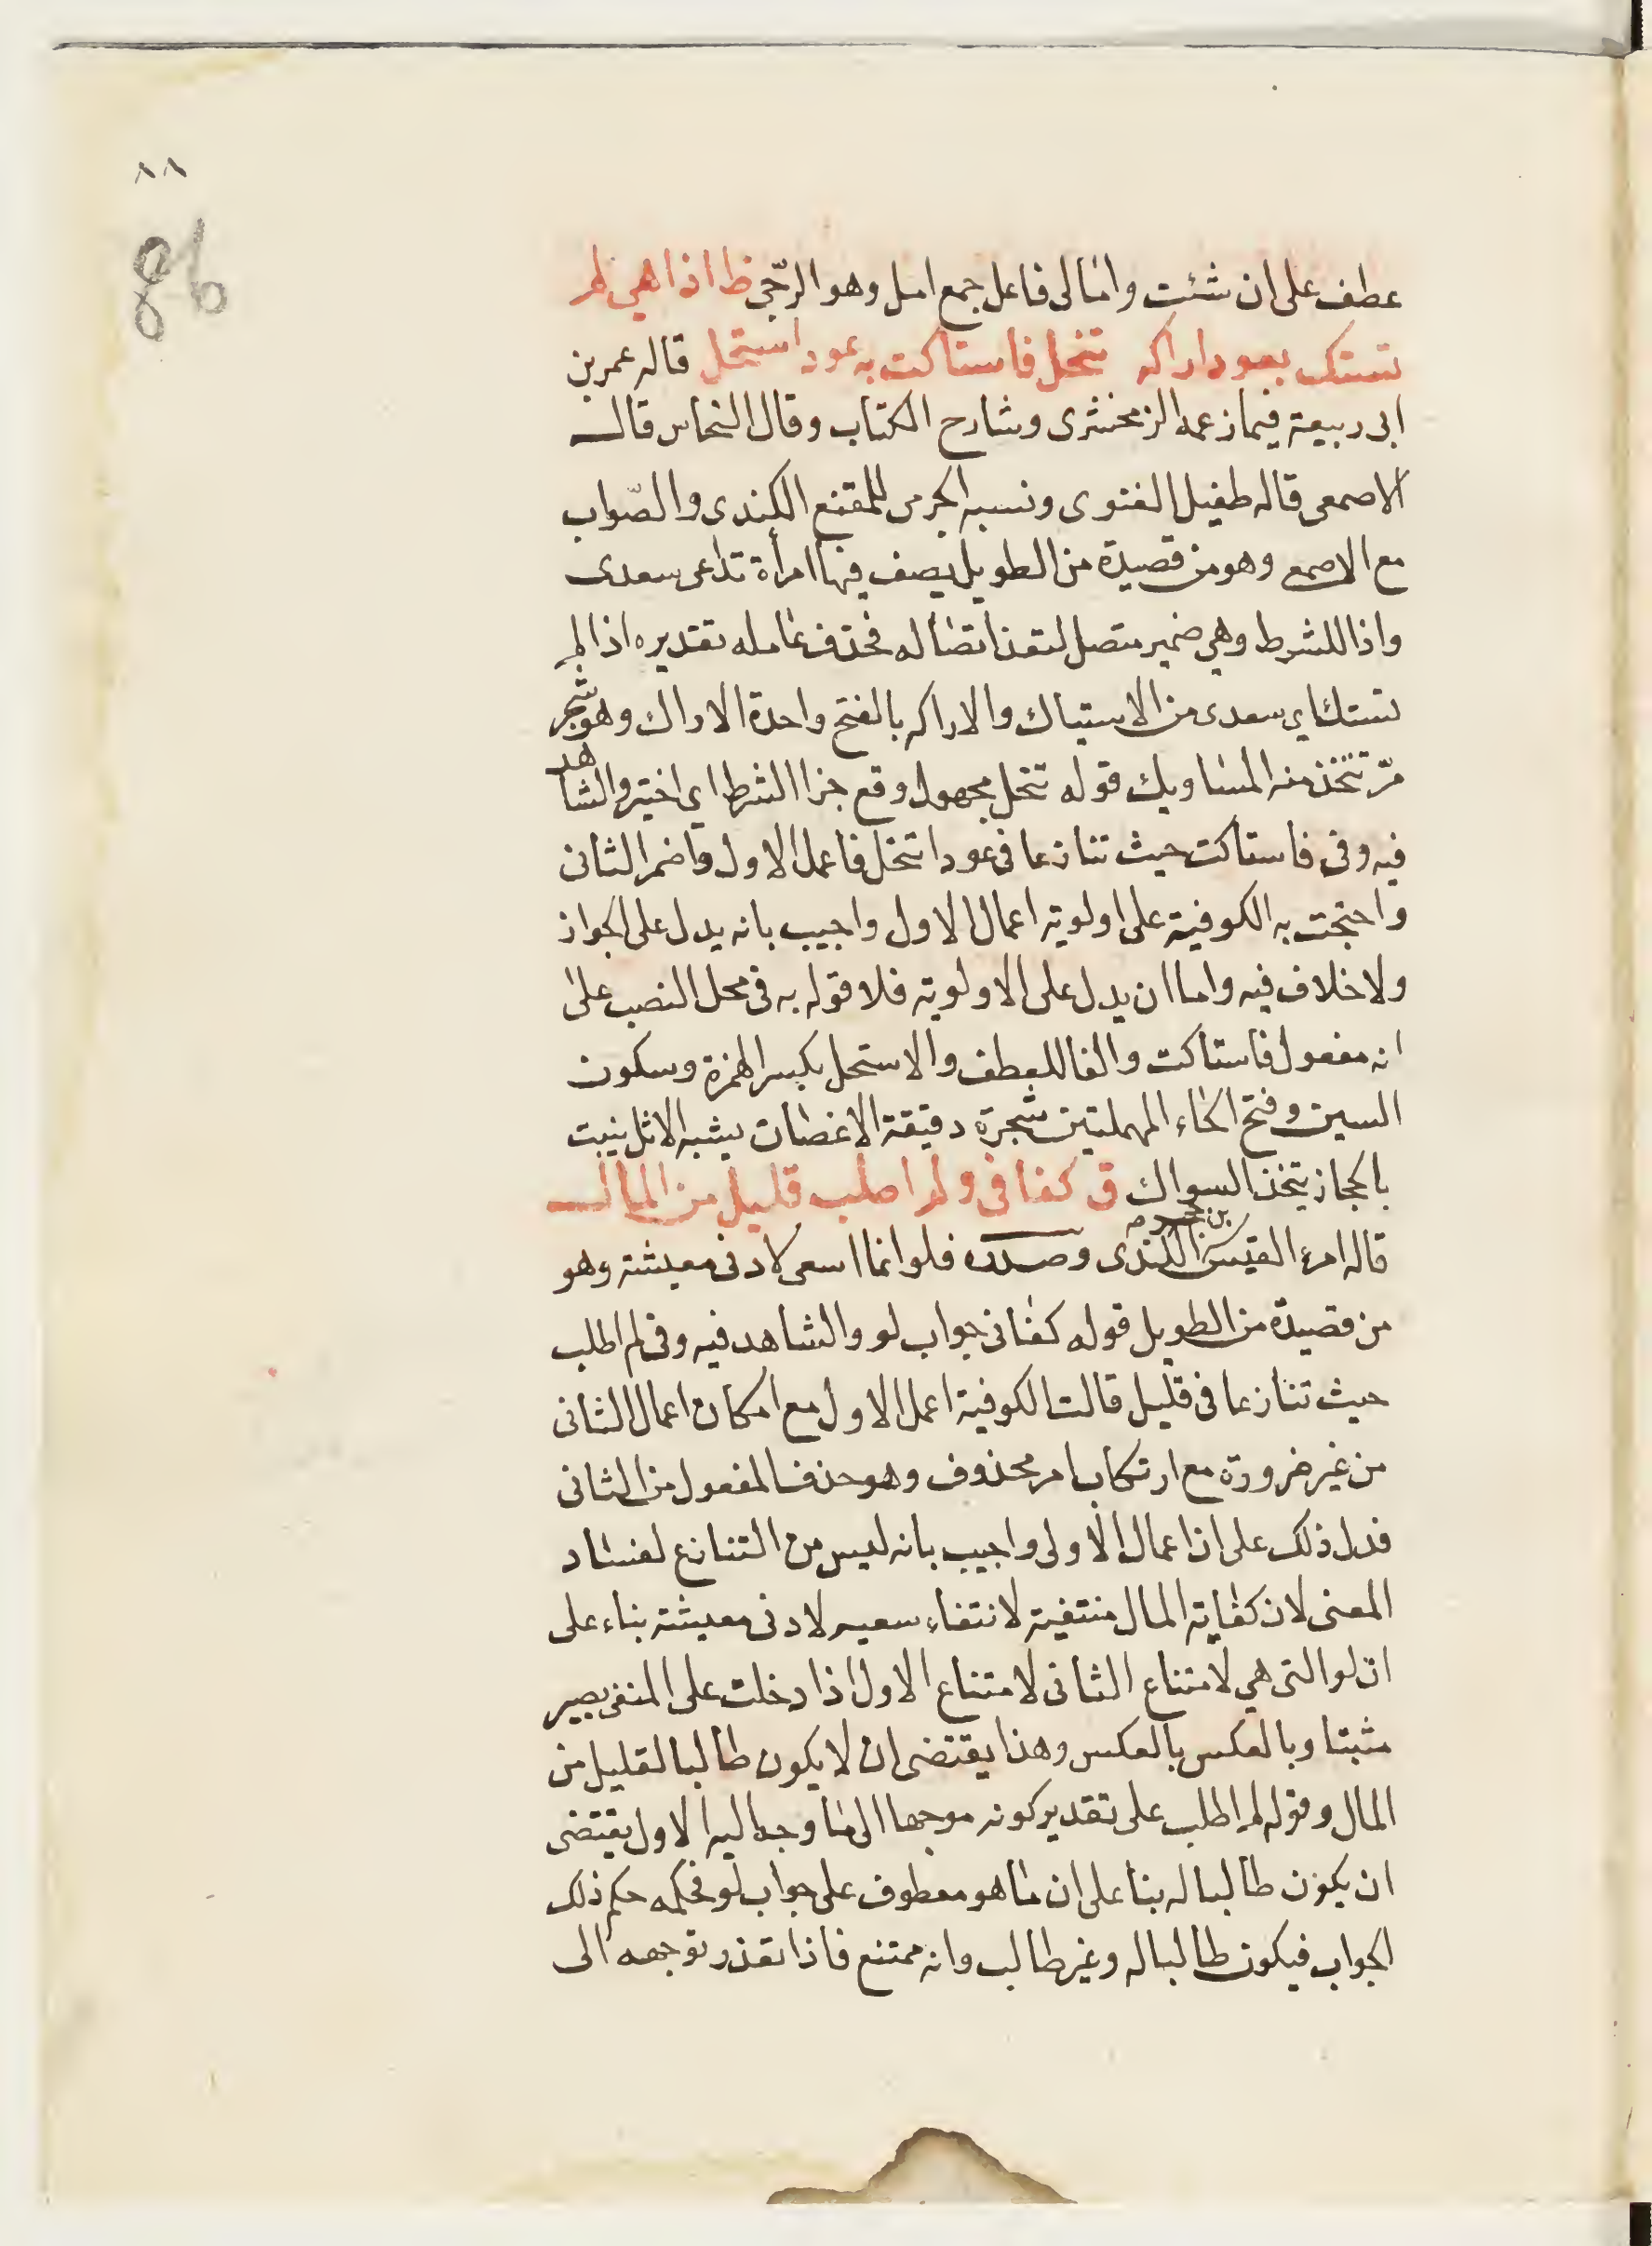 ٨٨
86
عطف على ان شئت وامالى فاعل جمع امل وهو الرّجى ظ اذا هي لم
تستك بعود اراكه تنخل فاستاكت به عود استحل قاله عمر بن
ابى ربيعة فيما زعمه الزمخشرى وشارح الكتاب وقال النحاس قال
الاصمعى قاله طفيل الغنوى ونسبه الجرمى للمقنع الكندى والصّواب
مع الاصمع وهو من قصيدة من الطويل يصف فيها امرأة تداعى سعدى
واذا للشرط وهي ضمير متصل لتعذر اتصاله فحذف عامله تقديره اذا لم
تستك اى سعدى من الاستياك والاراكه بالفتح واحدة الاراك وهو شجر
مرّ تتخذ منه المساويك قوله تنخل مجهول وقع جزا الشرط اى اختير والشاهد
فيه وفى فاستاكت حيث تنازعا فى عود اتنخل فاعمل الاول واضمر الثانى
واحتجت به الكوفية على اولوية اعمال الاول واجيب بانه يدل على الجواز
ولا خلاف فيه واما ان يدل على الاولوية فلا قوله به فى محل النصب على
انه مفعول فاستاكت والفا للعطف والاستحل بكسر الهمزة وسكون
السين وفتح الحاء المهملتين شجرة دقيقة الاغصان يشبه الاثل ينبت
بالحجاز يتخذ السواك ق كفانى ولم اطلب قليل من المال
قاله امرء القيس بن حجر الكندى وصدره فلو انما اسعى لادنى معيشته وهو
من قصيدة من الطويل قوله كفانى جواب لو والشاهد فيه وفى لم اطلب
حيث تنازعا فى قليل قالت الكوفية اعمل الاول مع امكان اعمال الثانى
من غير ضرورة مع ارتكاب امر محذوف وهو حذف المفعول من الثانى
فدل ذلك على ان اعمال الاولى واجيب بانه ليس من التنازع لفساد
المعنى لان كفاية المال منتفية لانتفاء سعيه لادنى معيشته بناء على
ان لو التى هي لامتناع الثانى لامتناع الاول اذا دخلت على المنفى يصير
مثبتا وبالعكس بالعكس وهذا يقتضى ان لا يكون طالبا لقليل من
المال وقوله لم اطلب على تقدير كونه موجها الى ما وجه اليه الاول يقتضى
ان يكون طالبا له بنا على ان ما هو معطوف على جواب لو فحكمه حكم ذلك
الجواب فيكون طالبا له وغير طالب وانه ممتنع فاذا تعذر توجهه الى